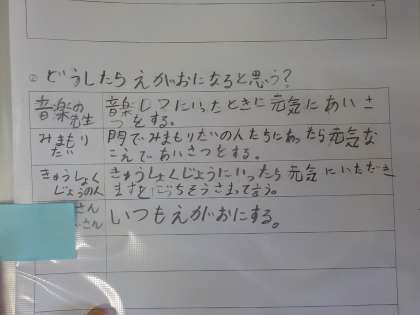 ② どうしたらえがおになると思う?
音楽の
先生
音楽しつにいったときに元気にあいさ
つをする。
みまもり
たい
門でみまもりたいの人たちにあったら元気な
こえであいさつをする。
きゅうしょく
じょうの人
きゅうしょくじょうにいったら元気にいただき
ますとごちそうさまって言う。
さん
さん
いつもえがおにする。